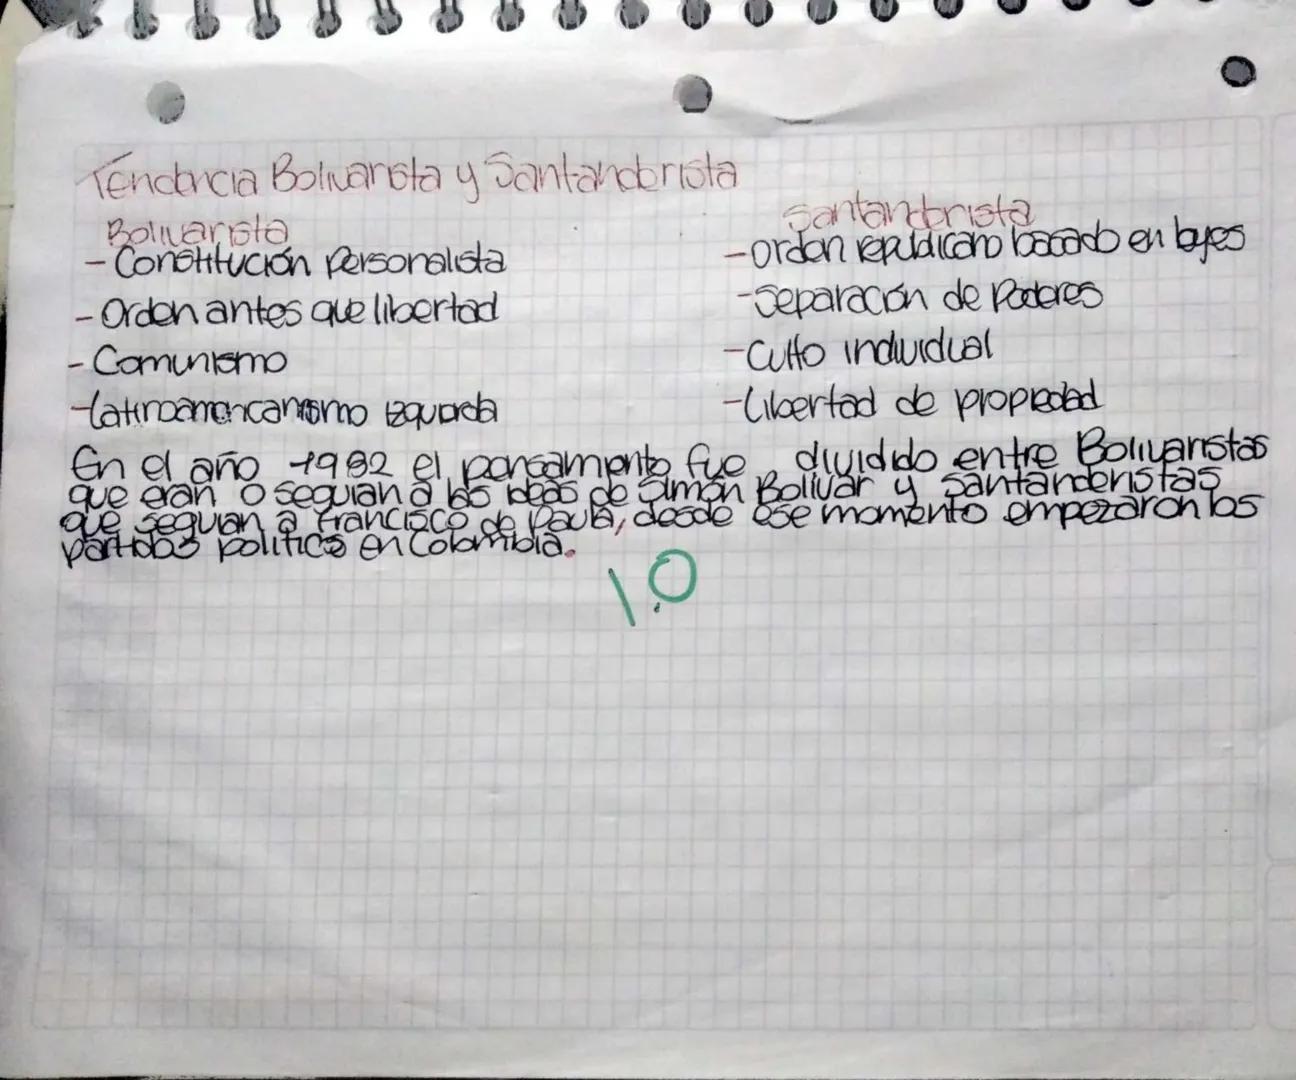 Tendencia Bolivarista y Santanderista
Bolivarista
- Constitución personalista
- Orden antes que libertad
- Comunismo
- Latinoamericanismo izquierda
Santanderista
- Orden republicano basado en leyes
- Separación de Poderes
- Culto individual
- Libertad de propiedad
En el año 1982 el pensamiento fue dividido entre Bolivaristas
que eran o seguian a las ideas de Simón Bolívar y Santanderistas
que seguian a Francisco de Paula, desde ese momento empezaron los
partidos politicos en Colombia.
1.0